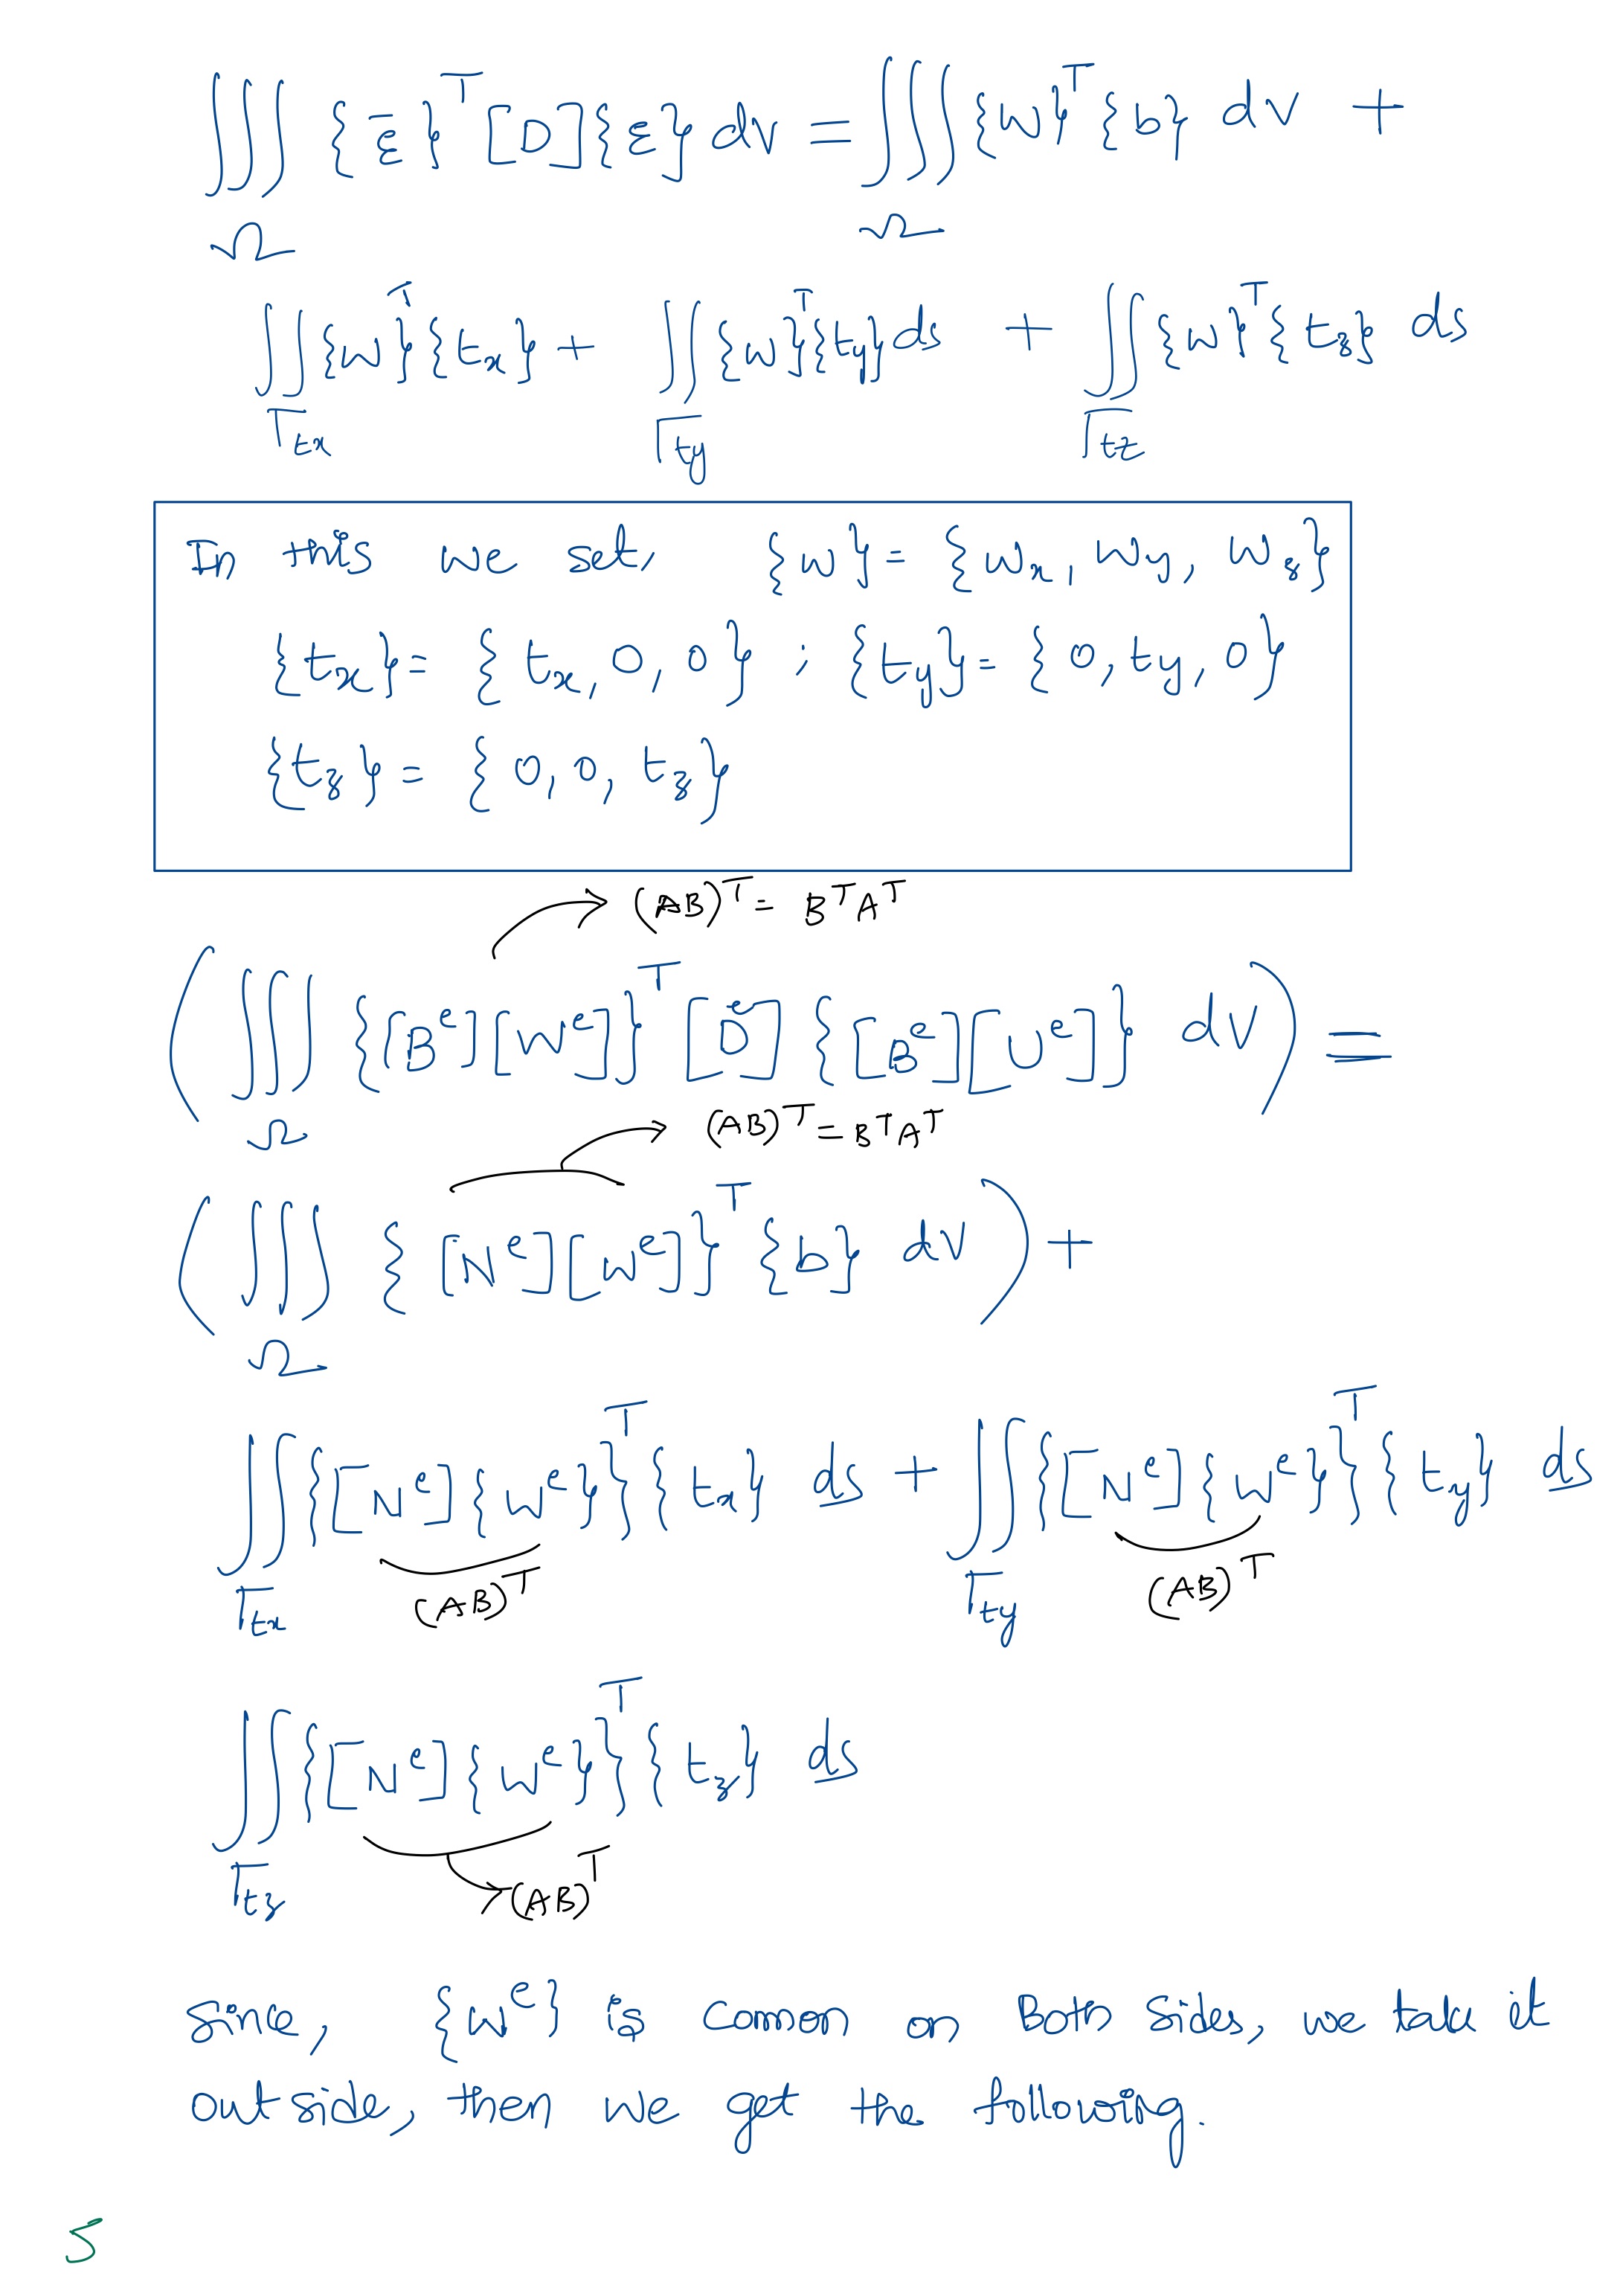 ∭_Ω {ε̄}^T [D]{ε} dv = ∭_Ω {w}^T {b} dv +
∬_Γtx {w}^T {tx} + ∬_Γty {w}^T {ty} ds + ∬_Γtz {w}^T {tz} ds
In this we set, {w} = {wx, wy, wz}
{tx} = {tx, 0, 0} ; {ty} = {0, ty, 0}
{tz} = {0, 0, tz}
(AB)^T = B^T A^T
(∭_Ω {[B^e][W^e]}^T [D^e] {[B^e][U^e]} dV) =
(AB)^T = B^T A^T
(∭_Ω {[N^e][W^e]}^T {b} dV) +
∬_Γtx {[N^e]{W^e}}^T {tx} ds + ∬_Γty {[N^e]{W^e}}^T {ty} ds
(AB)^T (AB)^T
∬_Γtz {[N^e]{W^e}}^T {tz} ds
(AB)^T
Since, {W^e} is comon on Both sides, we take it
outside, then we get the following.
5